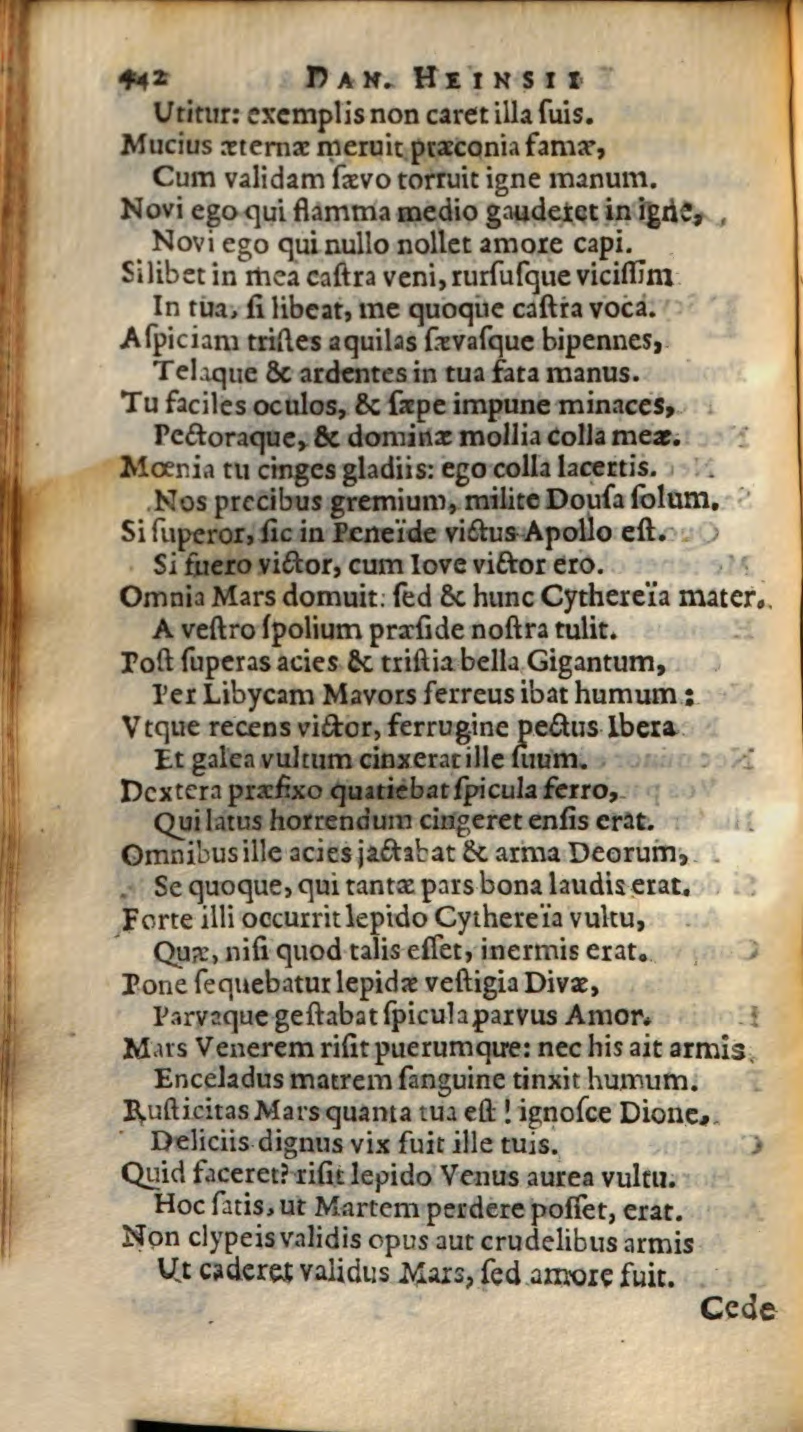 442 DAN. HEINSII
Utitur: exemplis non caret illa ſuis.
Mucius æternæ meruit præconia famæ,
Cum validam ſævo torruit igne manum.
Novi ego qui flamma medio gauderet in igne,
Novi ego qui nullo nollet amore capi.
Si libet in mea caſtra veni, rurſuſque viciſſim
In tua, ſi libeat, me quoque caſtra voca.
Aſpiciam triſtes aquilas ſævaſque bipennes,
Telaque & ardentes in tua fata manus.
Tu faciles oculos, & ſæpe impune minaces,
Pectoraque, & dominæ mollia colla meæ.
Mœnia tu cinges gladiis: ego colla lacertis.
Nos precibus gremium, milite Douſa ſolum.
Si ſuperor, ſic in Peneïde victus Apollo eſt.
Si fuero victor, cum Iove victor ero.
Omnia Mars domuit: ſed & hunc Cythereïa mater.
A veſtro ſpolium præſide noſtra tulit.
Poſt ſuperas acies & triſtia bella Gigantum,
Per Libycam Mavors ferreus ibat humum:
Vtque recens victor, ferrugine pectus Ibera
Et galea vultum cinxerat ille ſuum.
Dextera præfixo quatiebat ſpicula ferro,
Qui latus horrendum cingeret enſis erat.
Omnibus ille acies jactabat & arma Deorum,
Se quoque, qui tantæ pars bona laudis erat.
Forte illi occurrit lepido Cythereïa vultu,
Quæ, niſi quod talis eſſet, inermis erat.
Pone ſequebatur lepidæ veſtigia Divæ,
Parvaque geſtabat ſpicula parvus Amor.
Mars Venerem riſit puerumque: nec his ait armis
Enceladus matrem ſanguine tinxit humum.
Ruſticitas Mars quanta tua eſt! ignoſce Dione,
Deliciis dignus vix fuit ille tuis.
Quid faceret? riſit lepido Venus aurea vultu.
Hoc ſatis, ut Martem perdere poſſet, erat.
Non clypeis validis opus aut crudelibus armis
Ut caderet validus Mars, ſed amore fuit.
Cede